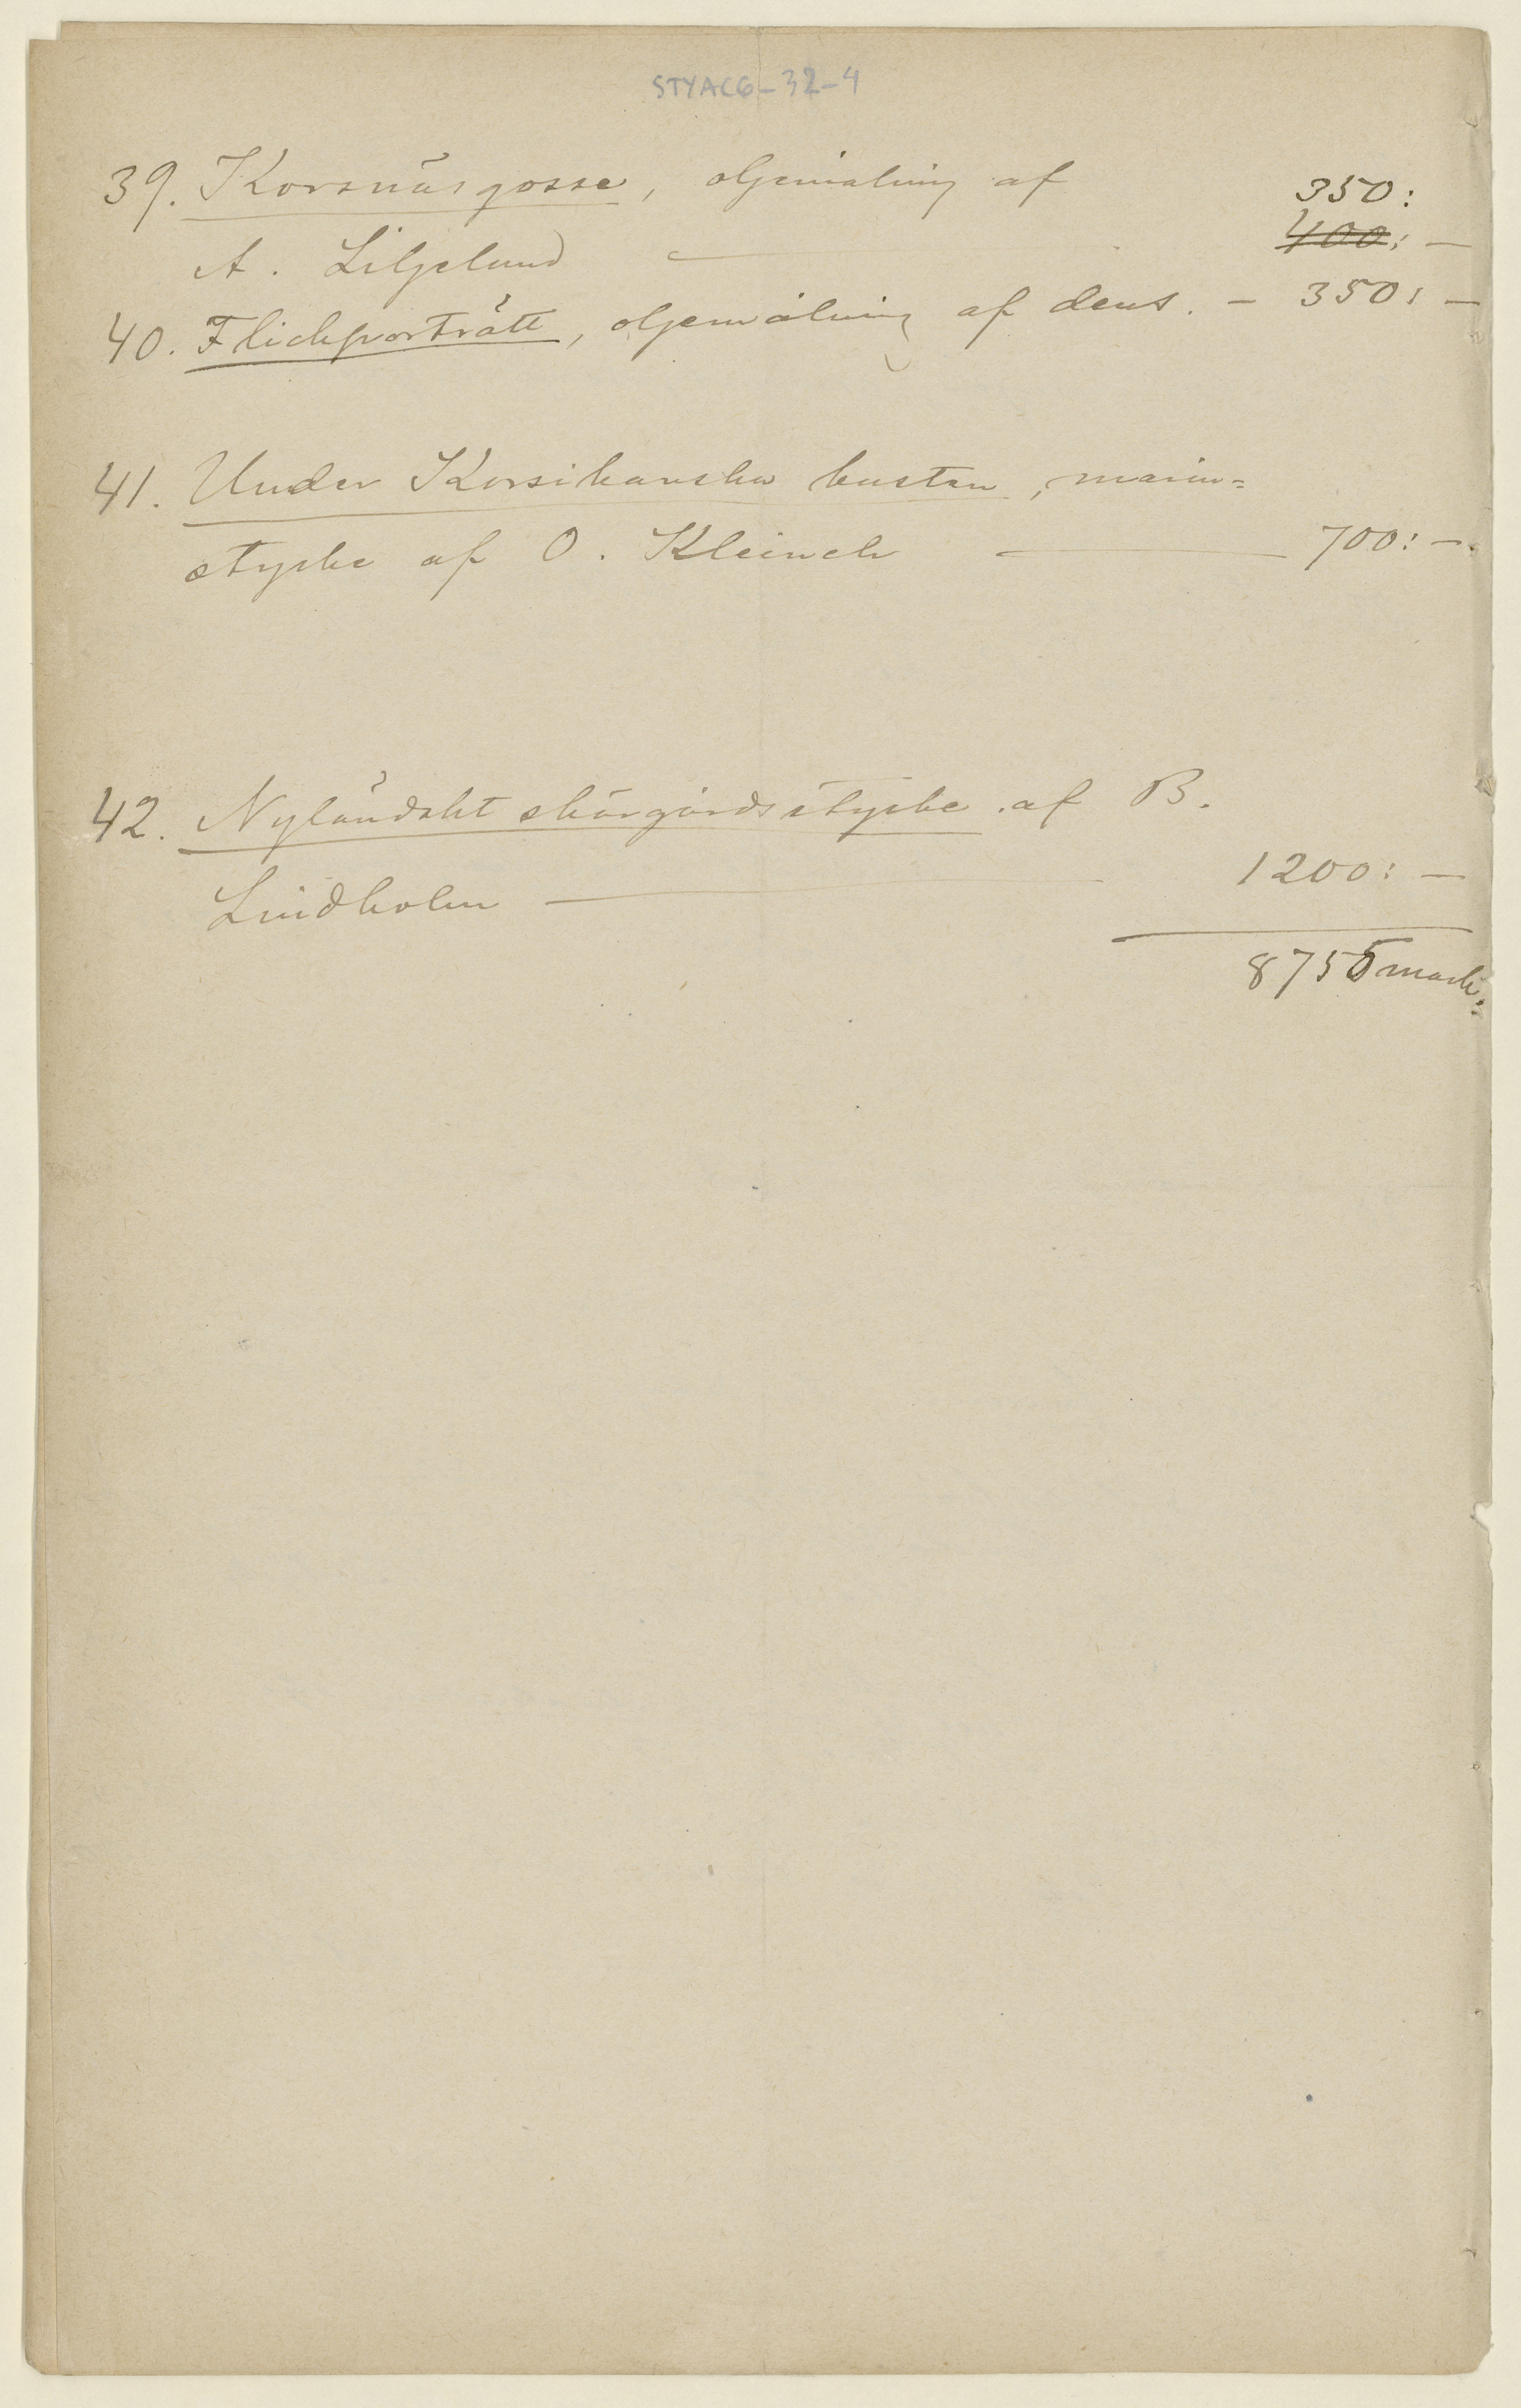 STYAC6-32-4
39. Korsnäsgosse, oljemålning af
350:
A. Liljelund — 400: —
40. Flickporträtt, oljemålning af dens. – 350: —
41. Under Korsikanska kusten, marin=
stycke af O. Kleineh — 700: —
42. Nyländskt skärgårdsstycke af B.
Lindholm — 1200: —
8755 mark.